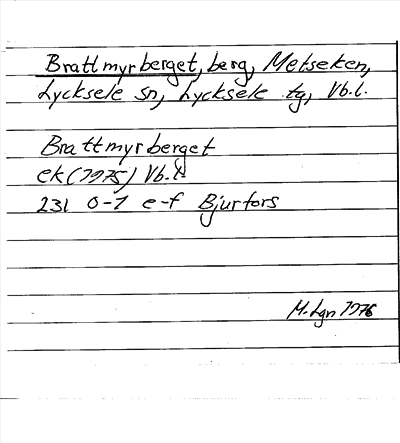 Brattmyrberget, berg, Metseken,
Lycksele sn, Lycksele tg, Vb.l.
Brattmyrberget
ek (1975) Vb.l.
231 0-1 e-f Bjurfors
M. Lgn 1976